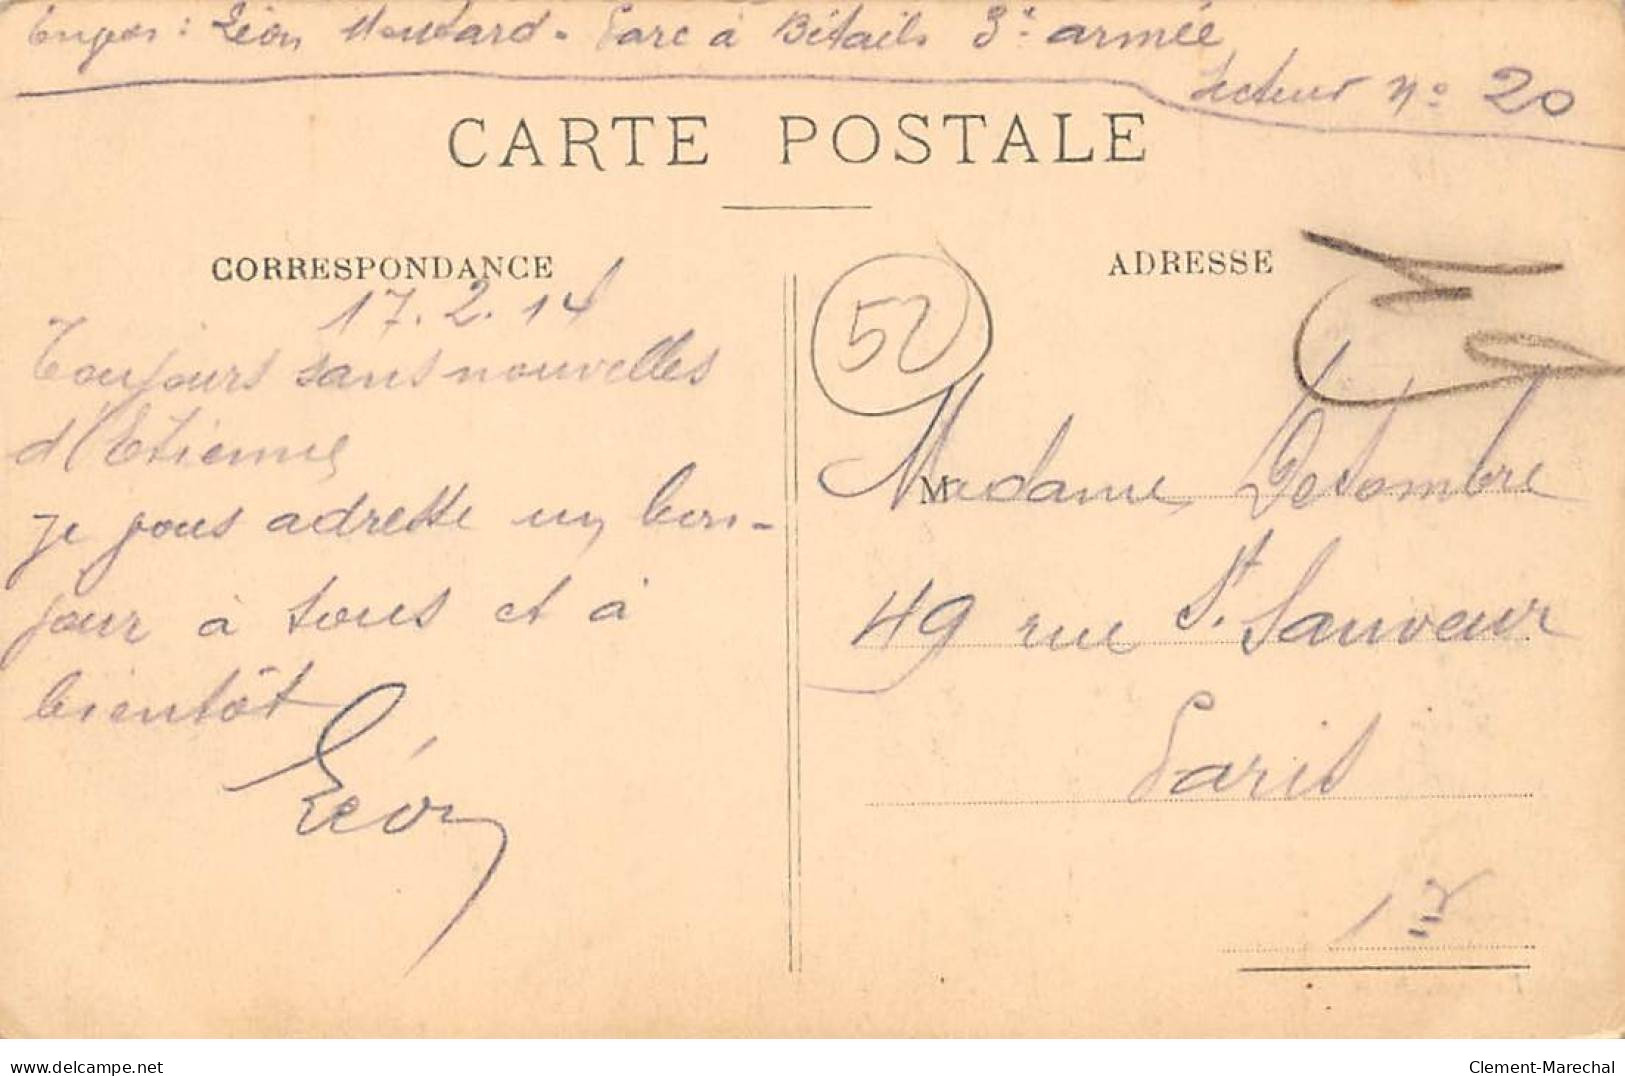 Léon Moutard - Parc à Bétails 3e armée
Secteur No 20
CARTE POSTALE
CORRESPONDANCE
ADRESSE
17.2.14
52
Toujours sans nouvelles
d'Etienne
je vous adresse un bon-
jour à tous et à
bientôt
Léon
Madame Delombre
49 rue St. Sauveur
Paris
delcampe.net
Clement-Marechal